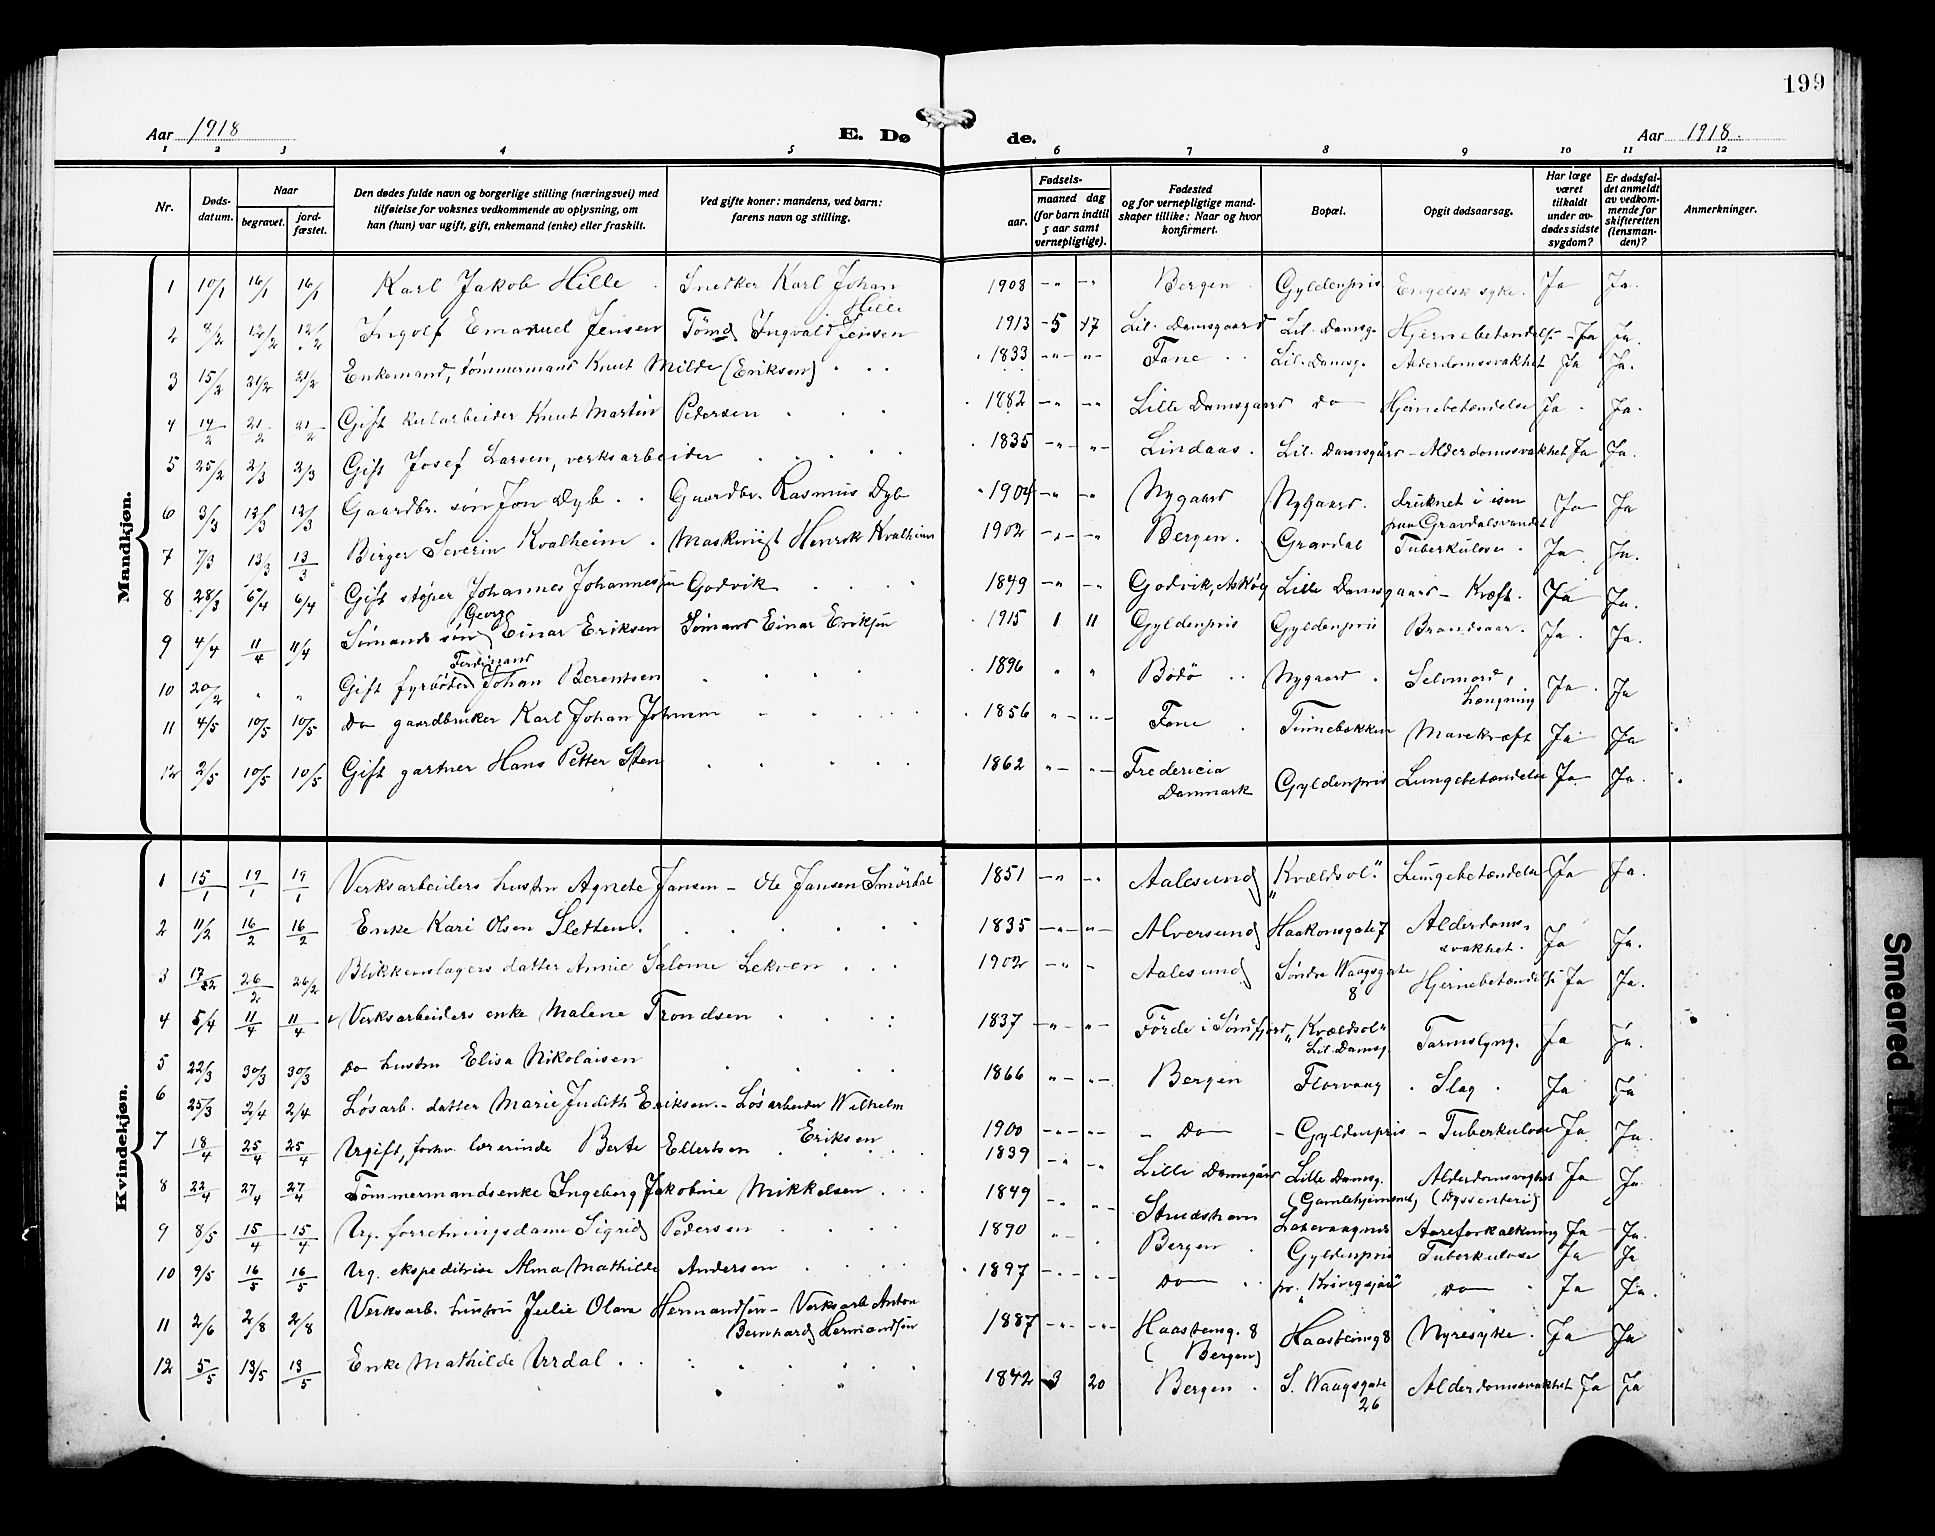 199
Aar 1918 E. Dø de. Aar 1918.
1 2 3 4 5 6 7 8 9 10 11 12
Nr. Døds-datum. Naar begravet. jord-fæstet. Den dødes fulde navn og borgerlige stilling (næringsvei) med tilføielse for voksnes vedkommende av oplysning, om han (hun) var ugift, gift, enkemand (enke) eller fraskilt. Ved gifte koner: mandens, ved barn: farens navn og stilling. Fødsels- aar. maaned dag (for barn indtil 5 aar samt vernepligtige). Fødested og for vernepligtige mand-skaper tillike: Naar og hvor konfirmert. Bopæl. Opgit dødsaarsag. Har læge været tilkaldt under av-dødes sidste sygdom? Er dødsfal-det anmeldt av vedkom-mende for skifteretten (lensman-den)? Anmerkninger.
Mandkjøn.
1 10/1 16/1 16/1 Karl Jakob Hille Snetker Karl Johan Hille 1908 Bergen Gyldenpris Engelsk syke. Ja Ja.
2 8/2 12/2 12/2 Ingolf Emanuel Jensen Tömd Ingvald Jensen 1913 5 17 Lil. Damsgaard Lil. Damsg. Hjernebetændelse Ja Ja.
3 15/2 21/2 21/2 Enkemand, tømmermand Knut Milde (Eriksen) 1833 Fane Lil. Damsg. Alderdomssvakhet Ja Ja.
4 14/2 21/2 21/2 Gift kularbeider Knut Martin Pedersen 1882 Lille Damsgaard do Hjernebetændelse Ja Ja.
5 25/2 2/3 2/3 Gift Josef Larsen, verksarbeider 1835 Lindaas. Lil. Damsgård Alderdomssvakhet Ja Ja.
6 3/3 12/3 12/3 Gaardbr. søn Jon Dyb Gaardbr. Rasmus Dyb 1904 Nygaard Nygaard. Druknet i isen paa Gravdalsvandet Ja Ja
7 7/3 13/3 13/3 Birger Severin Kvalheim. Maskinist Henrik Kvalheim 1902 Bergen. Gravdal Tuberkulose. Ja Ja.
8 28/3 6/4 6/4 Gift støper Johannes Johannessen Godvik 1849 Godvik, Askøy Lille Damsgaard Kræft. Ja Ja.
9 4/4 11/4 11/4 Sømands søn Georg Einar Eriksen Sømand Einar Eriksen 1915 1 11 Gyldenpris Gyldenpris Brandsaar. Ja Ja.
10 20/2 " " Gift fyrbøter Ferdinand Johan Berentsen 1896 Bodö Nygaard. Selvmord, hængning Ja. Ja
11 4/5 10/5 10/5 Do gaardbruker Karl Johan Johnsen 1856 Fane Tinnebakken Mavekræft Ja Ja
12 2/5 10/5 10/5 Gift gartner Hans Petter Sten 1862 Fredericia Danmark Gyldenpris Lungebetændelse Ja Ja.
Kvindekjøn.
1 15/1 19/1 19/1 Verksarbeiders hustru Agnete Jansen – Ole Jansen Smördal 1851 Aalesund "Kvældsol" Lungebetændelse Ja Ja.
2 11/2 16/2 16/2 Enke Kari Olsen Sletten. 1835 Alversund Haakonsgate 7 Alderdoms-svakhet. Ja Ja.
3 17/2 26/2 26/2 Blikkenslagers datter Annie Salome Lekven 1902 Aalesund Søndre Waagsgate 8 Hjernebetændelse Ja Ja.
4 5/4 11/4 11/4 Verksarbeiders enke Malene Trondsen 1837 Förde i Söndfjord "Kvældsol" Lil. Damsg. Tarmslyng. Ja Ja.
5 22/3 30/3 30/3 Do hustru Elisa Nikolaisen 1866 Bergen Florvaag Slag. Ja Ja
6 25/3 2/4 2/4 Løsarb. datter Marie Judith Eriksen. – Løsarbeider Wilhelm Eriksen 1900 Do Gyldenpris Tuberkulose Ja Ja.
7 18/4 25/4 25/4 Ugift, forhv. lærerinde Berte Ellertsen 1839 Lille Damsgård Lille Damsg. (Gamlehjemmet) Alderdomssvaghet (Dyssenteri) Ja Ja.
8 22/4 27/4 27/4 Tömmermandsenke Ingeborg Jakobine Mikkelsen 1849 Strudshavn Laxevaagnes Aareforkalkning Ja Ja.
9 8/5 15/4 15/4 Ug. forretningsdame Sigrid Pedersen 1890 Bergen Gyldenpris Tuberkulose Ja Ja
10 9/5 16/5 16/5 Ug. ekspeditrise Alma Mathilde Andersen 1897 Do Do Ja Ja.
11 2/6 2/8 2/8 Verksarb. hustru Julie Olava Hermandsen – Verksarb. Anton Bernhard Hermandsen 1887 Haasteinsg. 8 (Bergen) Haasteinsg 8 Nyresyke. Ja Ja
12 5/5 13/5 13/5 Enke Mathilde Urdal 1842 3 20 Bergen. S. Waagsgate 26 Alderdomssvakhet Ja Ja
Smeared